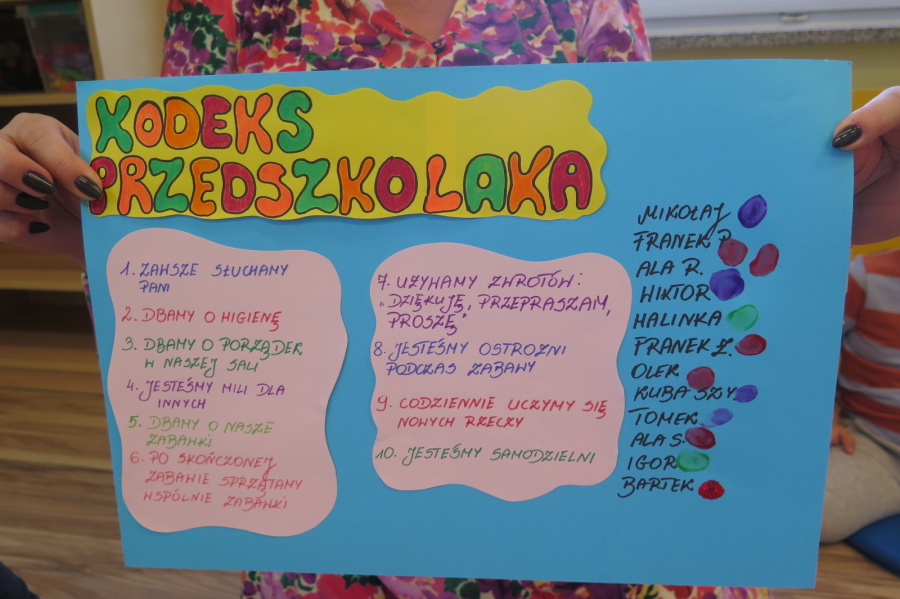 KODEKS
PRZEDSZKOLAKA
1. ZAWSZE SŁUCHAMY
PANI
2. DBAMY O HIGIENĘ
3. DBAMY O PORZĄDEK
W NASZEJ SALI
4. JESTEŚMY MILI DLA
INNYCH
5. DBAMY O NASZE
ZABAWKI
6. PO SKOŃCZONEJ
ZABAWIE SPRZĄTAMY
WSPÓLNIE ZABAWKI
7. UŻYWAMY ZWROTÓW:
„DZIĘKUJĘ, PRZEPRASZAM,
PROSZĘ"
8. JESTEŚMY OSTROŻNI
PODCZAS ZABAWY
9. CODZIENNIE UCZYMY SIĘ
NOWYCH RZECZY
10. JESTEŚMY SAMODZIELNI
MIKOŁAJ
FRANEK P.
ALA R.
WIKTOR
HALINKA
FRANEK Ż.
OLEK
KUBA SZY.
TOMEK
ALA S.
IGOR
BARTEK